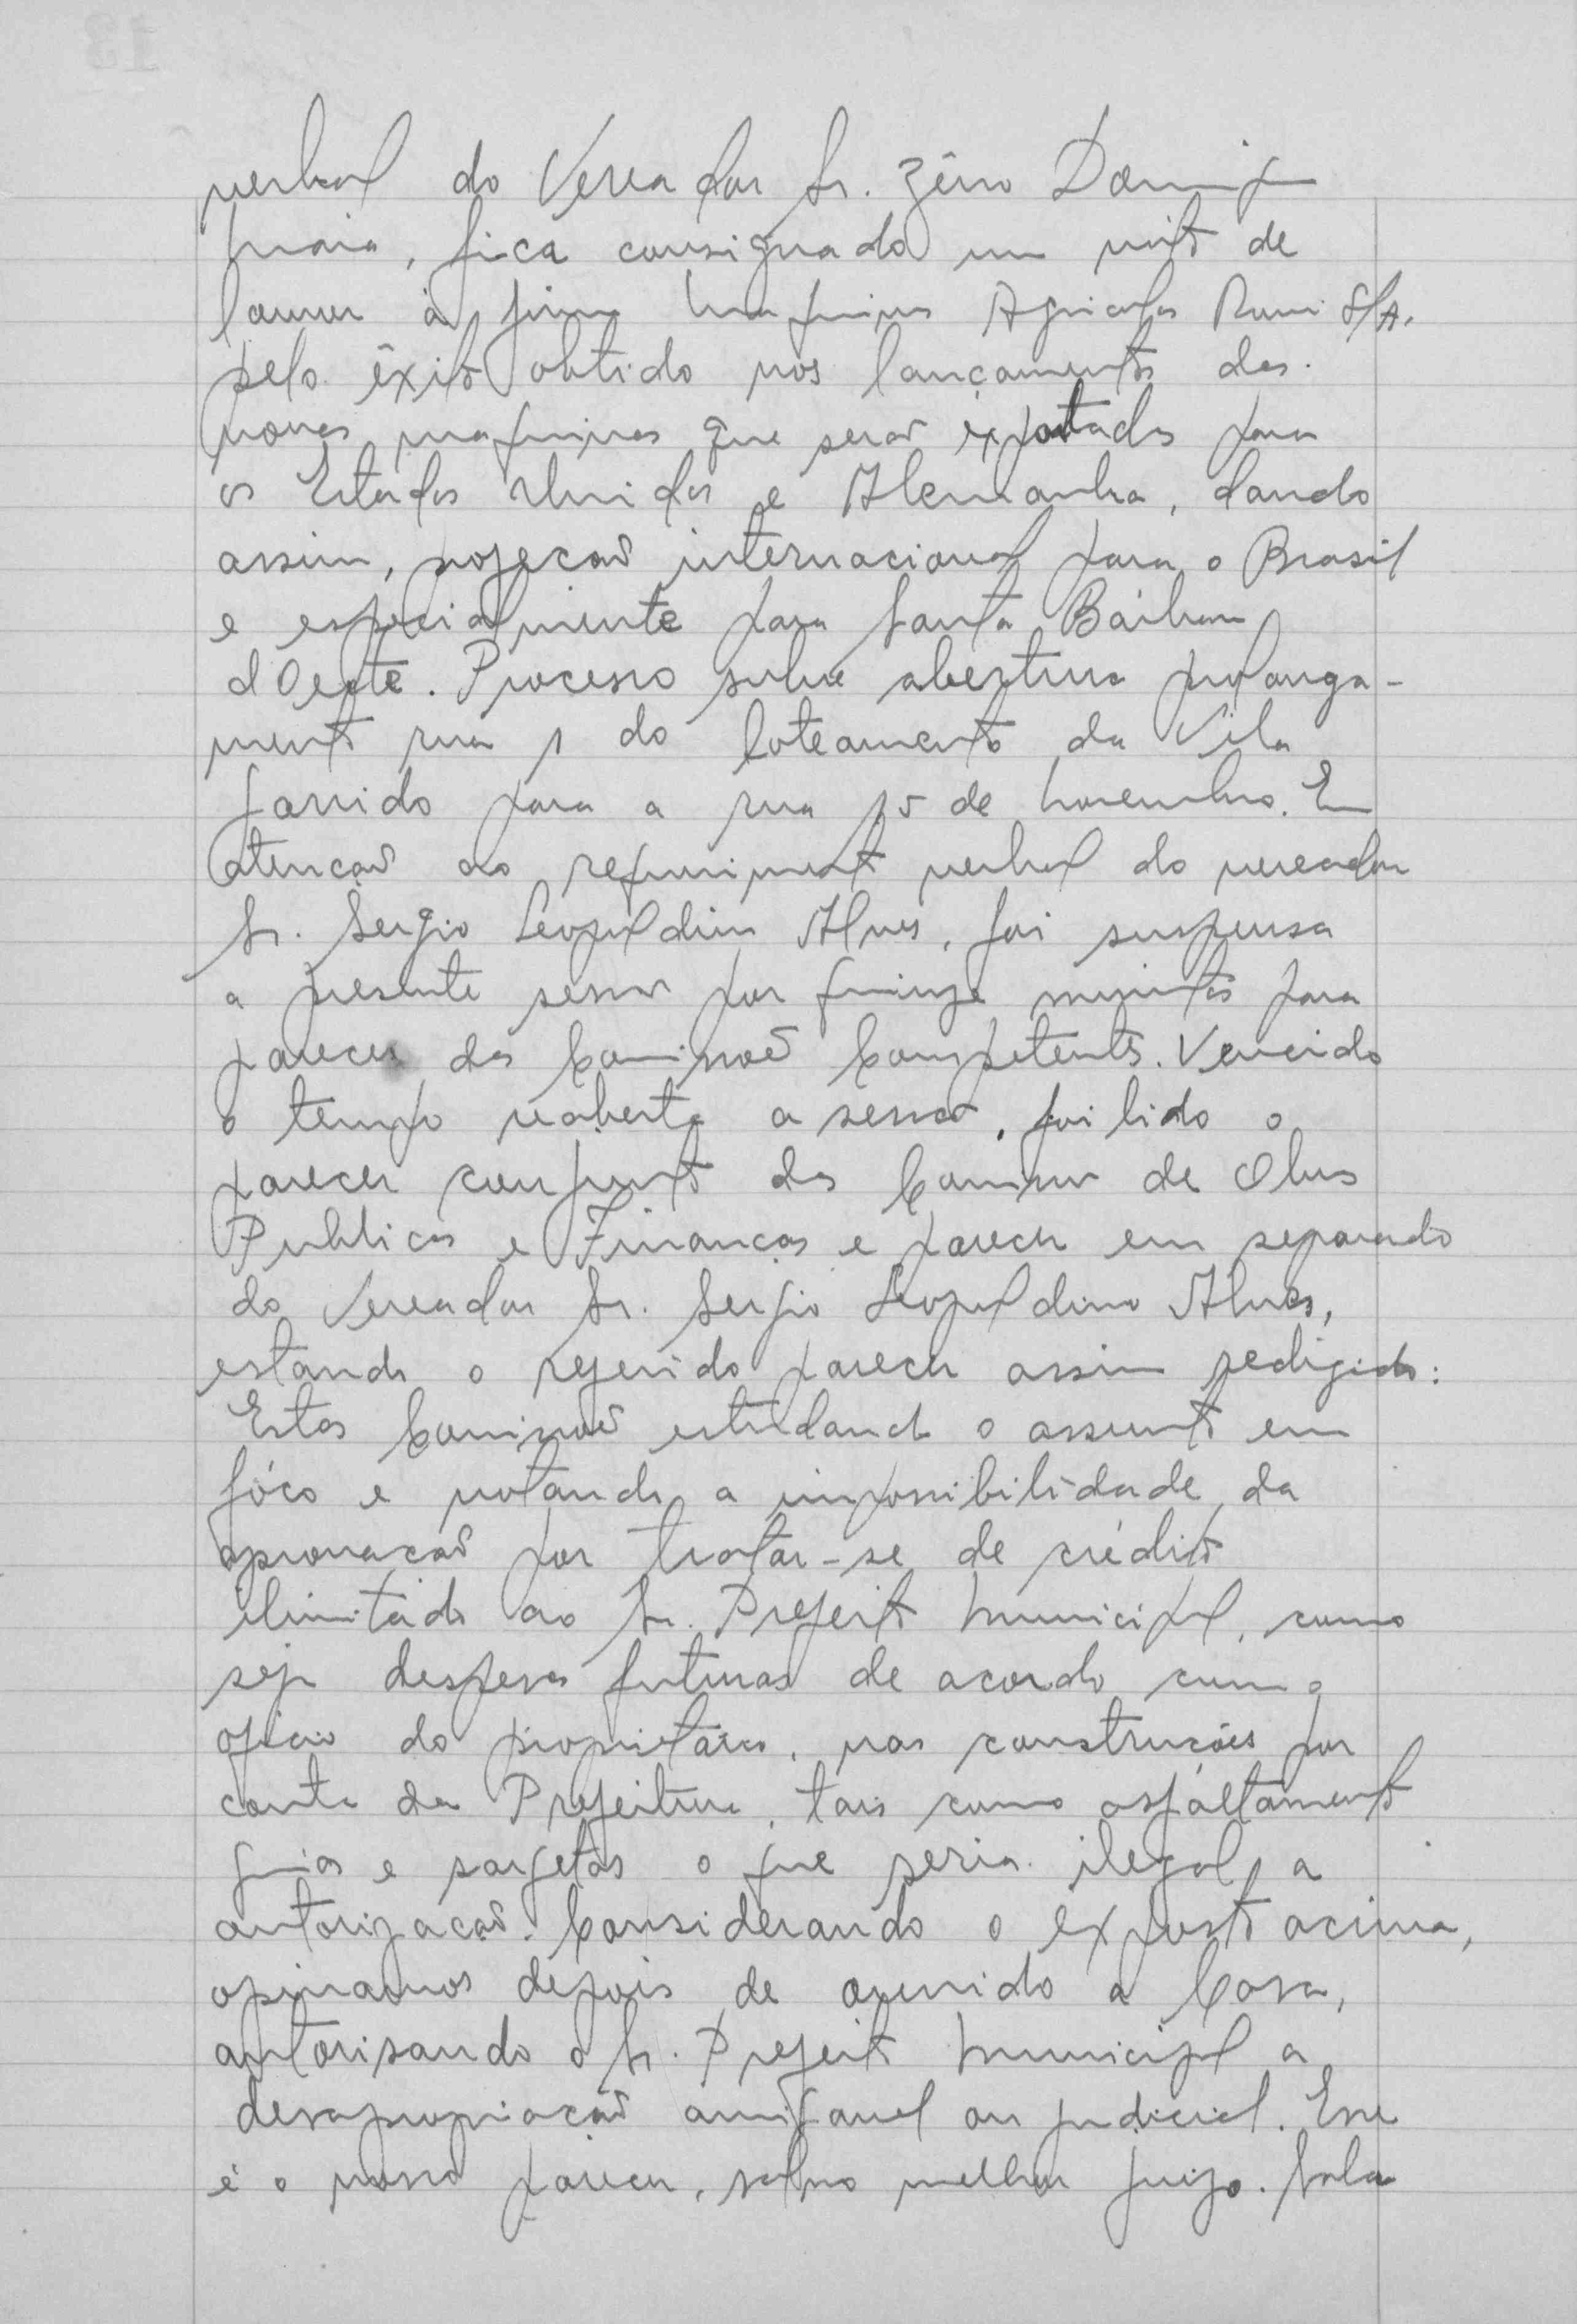 verbal do Vereador Sr. Zêno Domingos
Maia, fica consignado um voto de
louvor à firma Maquinas Agricolas Romi S/A.
pelo êxito obtido nos lançamentos das
novas maquinas que serão exportadas para
os Estados Unidos e Alemanha, dando
assim, projeção internacional para o Brasil
e especialmente para Santa Bárbara
d'Oeste. Processo sobre abertura prolonga-
mento rua 1 do loteamento da Vila
Garrido para a rua 15 de Novembro. Em
atenção ao requerimento verbal do vereador
Sr. Sergio Leopoldino Alves, foi suspensa
a presente sessão por quinze minutos para
parecer das Comissoẽs Competentes. Vencido
o tempo reaberta a sessão, foi lido o
parecer conjunto das Comissoẽs de Obras
Publicas e Finanças e parecer em separado
do Vereador Sr. Sergio Leopoldino Alves,
estando o referido parecer assim redigido:
Estas Comissoẽs estudando o assunto em
fóco e notando a impossibilidade da
aprovação por tratar-se de crédito
ilimitado ao Sr. Prefeito Municipal, como
seja despesas futuras de acordo com o
oficio do proprietário, nas construções por
conta da Prefeitura, tais como asfáltamento
guias e sargetas o que seria ilegal a
autorização. Considerando o exposto acima,
opinamos depois de ouvido a Casa,
autorisando o Sr. Prefeito Municipal a
desapropriação amigavel ou judicial. Esse
é o nosso parecer, salvo melhor juizo. Sala